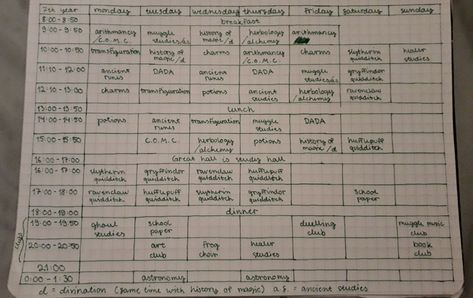 7th year monday tuesday wednesday thursday friday saturday sunday
8:00 - 8:50 breakfast
9:00 - 9:50 arithmancy muggle history of herbology arithmancy
/C.O.M.C. studies magic /d /alchemy
10:00 - 10:50 transfiguration history of charms arithmancy charms slytherin healer
magic /d /C.O.M.C. quidditch studies
11:10 - 12:00 ancient DADA ancient DADA muggle gryffindor
runes runes studies quidditch
12:10 - 13:00 charms transfiguration potions ancient herbology ravenclaw
studies /alchemy quidditch
13:00 - 13:50 lunch
14:00 - 14:50 potions ancient transfiguration muggle DADA
runes studies
15:00 - 15:50 C.O.M.C. herbology potions history of hufflepuff
/alchemy magic /d quidditch
16:00 - 17:00 Great hall is study hall
16:00 - 17:00 slytherin gryffindor ravenclaw hufflepuff
quidditch quidditch quidditch quidditch
17:00 - 18:00 ravenclaw hufflepuff slytherin gryffindor school
quidditch quidditch quidditch quidditch paper
18:00 - 19:00 dinner
19:00 - 19:50 ghoul school duelling muggle music
studies paper club club
20:00 - 20:50 art frog healer book
club choir studies club
21:00
0:00 - 1:30 astronomy astronomy
d = divination (same time with history of magic) a.s. = ancient studies